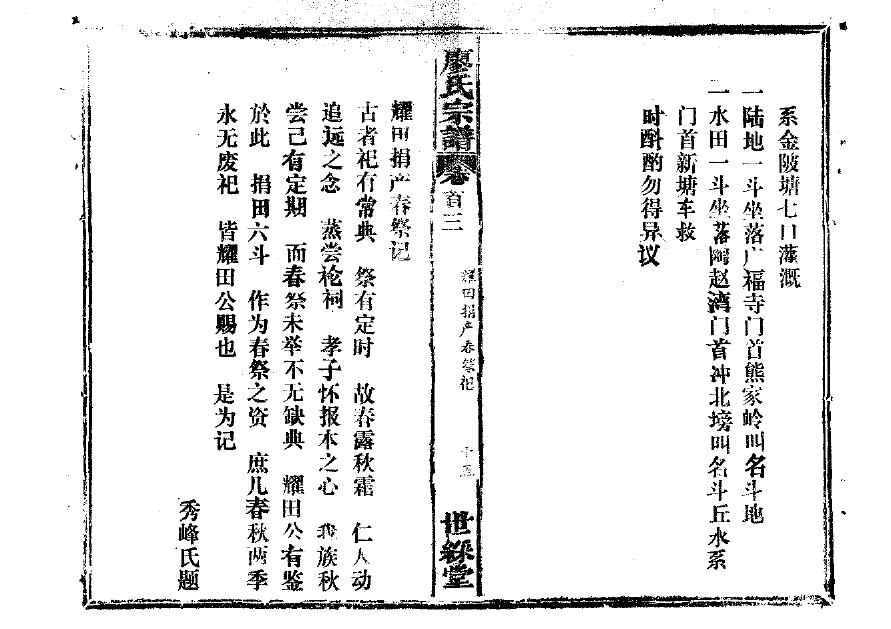 系金陂塘七口灌溉
一陆地一斗坐落广福寺门首熊家岭叫名斗地
一水田一斗坐落陶赵湾门首冲北塝叫名斗丘水系
门首新塘车救
时斟酌勿得异议
廖氏宗譜 卷首三 耀田捐产春祭祀 十五 世綵堂
耀田捐产春祭记
古者祀有常典 祭有定时 故春露秋霜 仁人动
追远之念 蒸尝枪祠 孝子怀报本之心 我族秋
尝己有定期 而春祭未举不无缺典 耀田公有鉴
於此 捐田六斗 作为春祭之资 庶几春秋两季
永无废祀 皆耀田公赐也 是为记
秀峰氏题